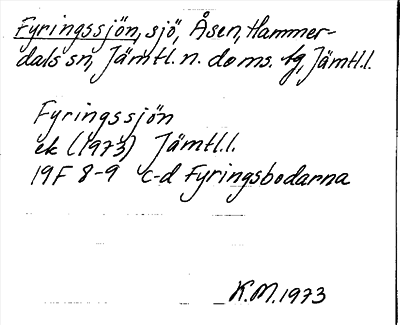 Fyringssjön, sjö, Åsen, Hammer-
dals sn, Jämtl. n. doms. tg, Jämtl.l.
Fyringssjön
ek (1973) Jämtl.l.
19F 8-9 c-d Fyringsbodarna
K.M. 1973